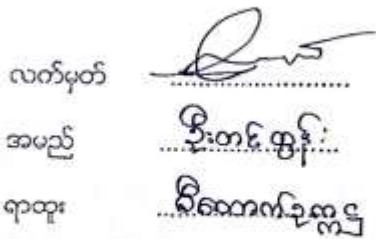 လက်မှတ်
အမည် ဦးတင်ထွန်း
ရာထူး ဦးထောက်ဥက္ကဋ္ဌ